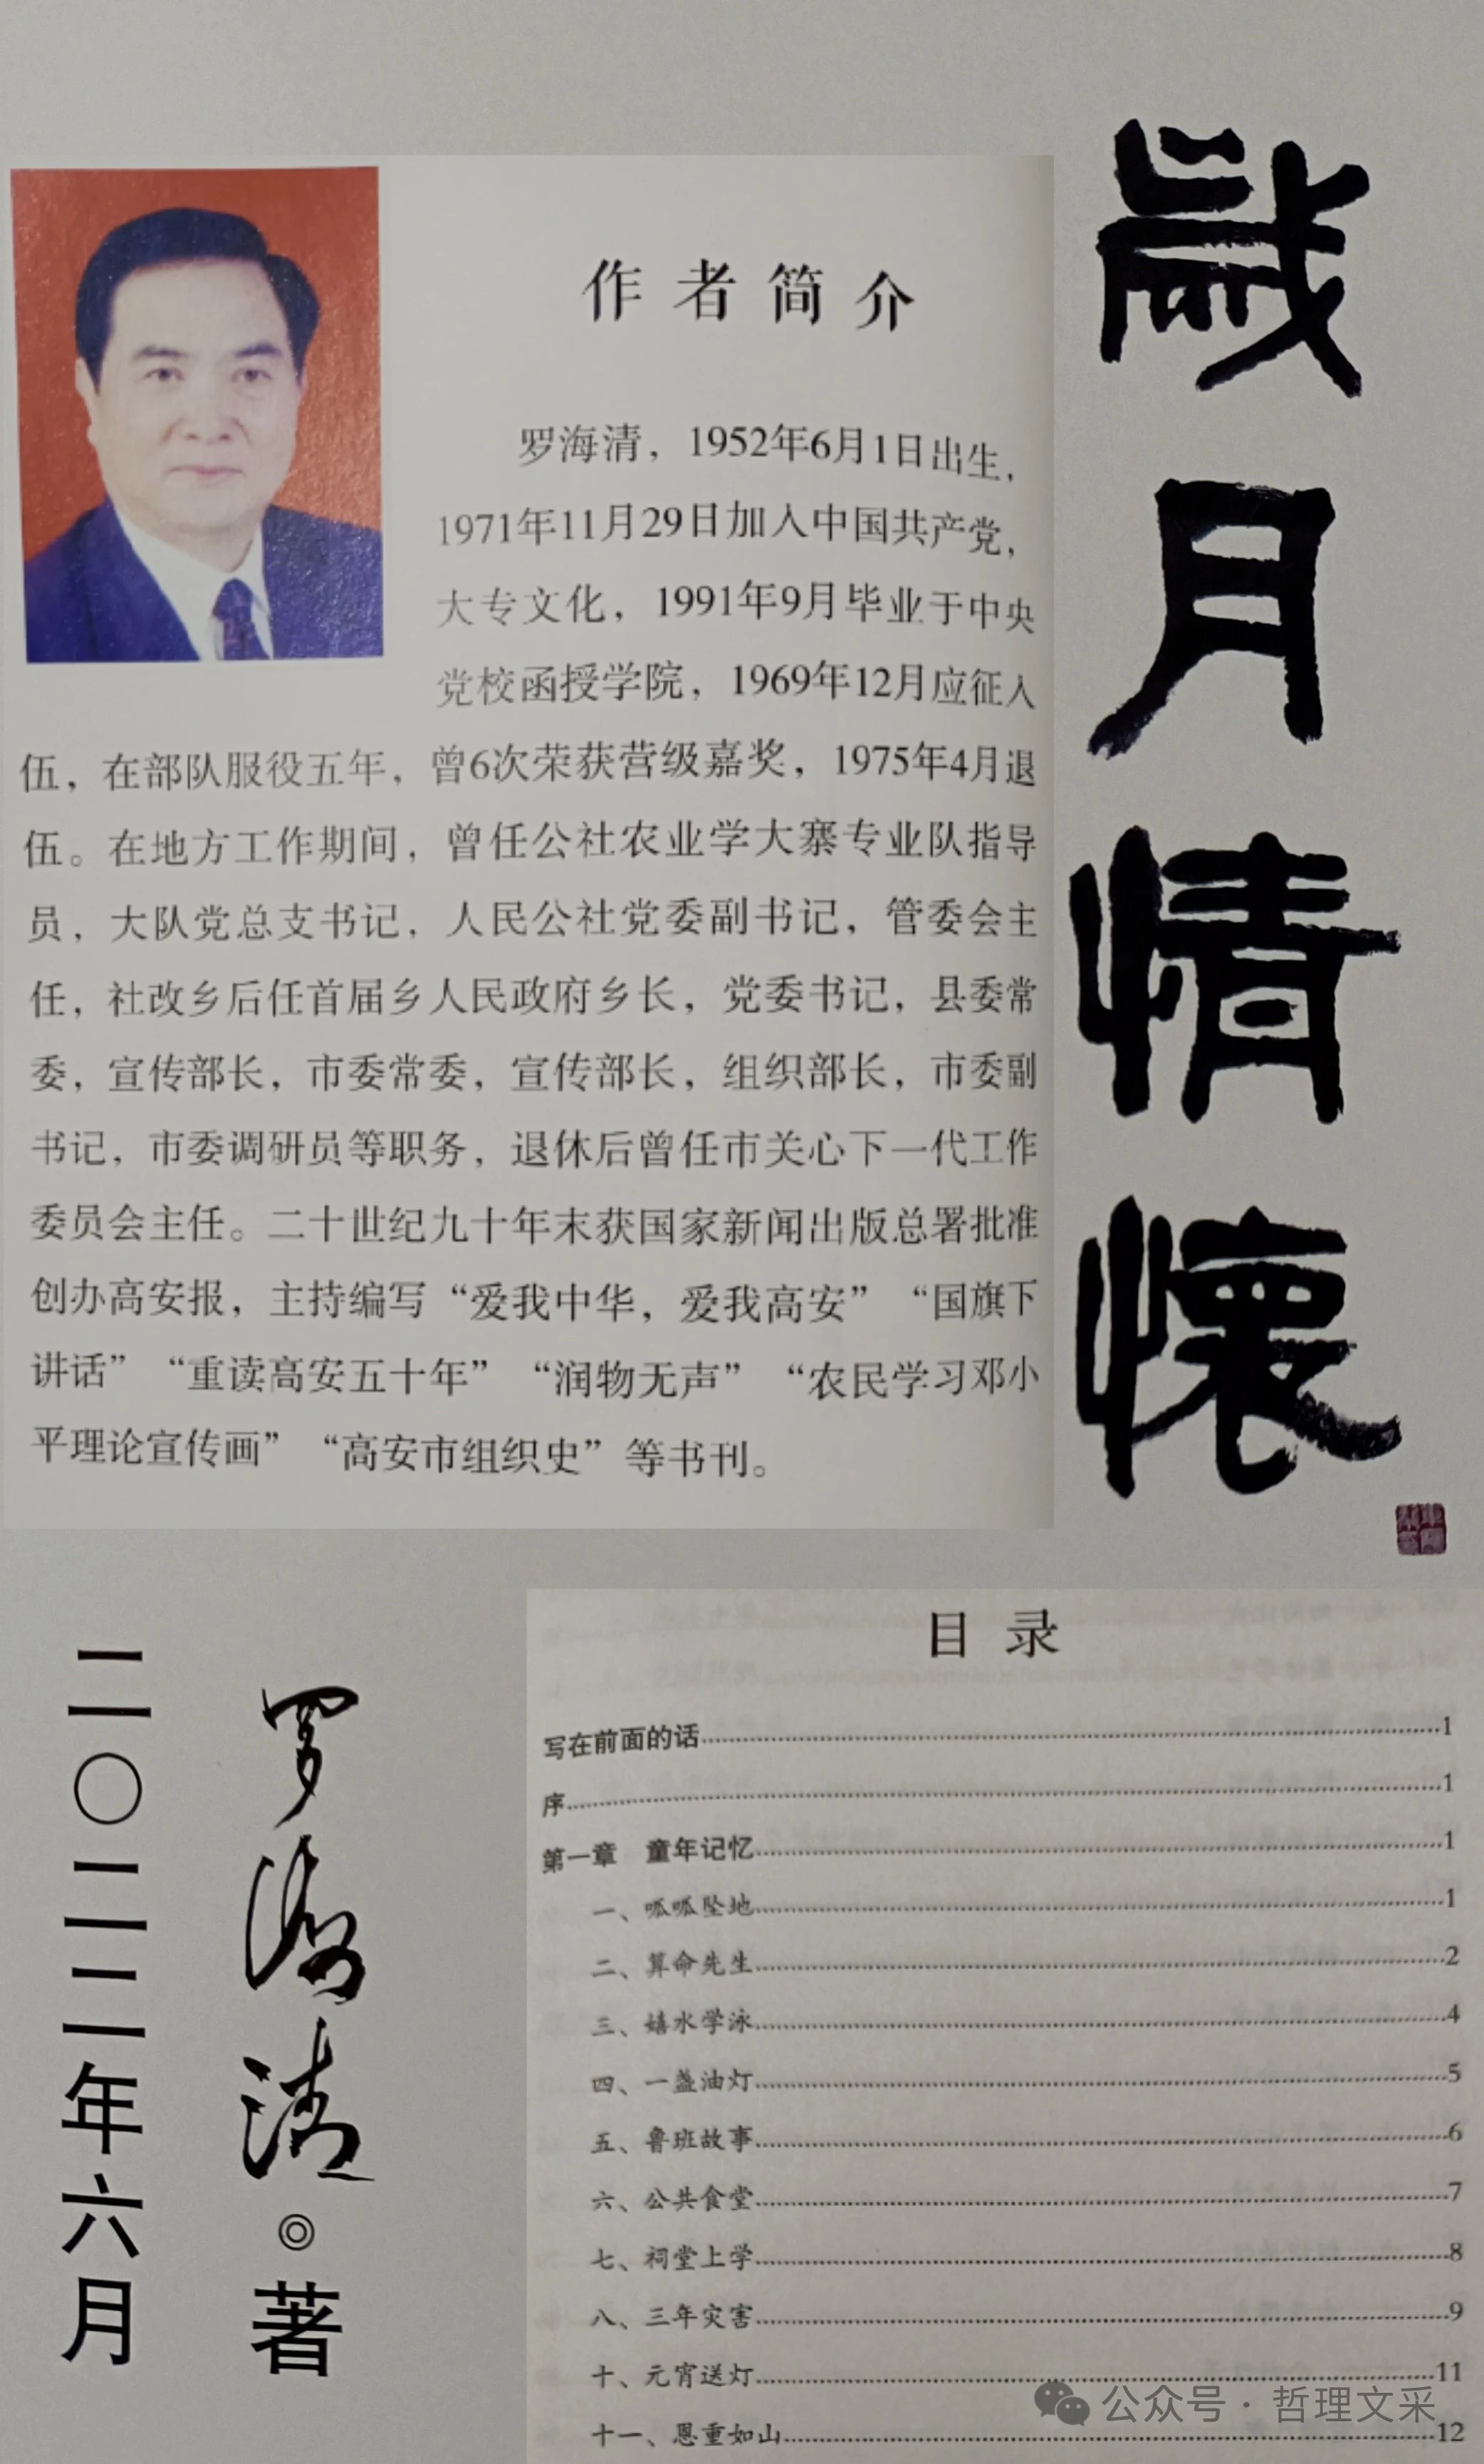 歲月情懷
作者简介
罗海清，1952年6月1日出生，
1971年11月29日加入中国共产党，
大专文化，1991年9月毕业于中央
党校函授学院，1969年12月应征入
伍，在部队服役五年，曾6次荣获营级嘉奖，1975年4月退
伍。在地方工作期间，曾任公社农业学大寨专业队指导
员，大队党总支书记，人民公社党委副书记，管委会主
任，社改乡后任首届乡人民政府乡长，党委书记，县委常
委，宣传部长，市委常委，宣传部长，组织部长，市委副
书记，市委调研员等职务，退休后曾任市关心下一代工作
委员会主任。二十世纪九十年末获国家新闻出版总署批准
创办高安报，主持编写“爱我中华，爱我高安”“国旗下
讲话”“重读高安五十年”“润物无声”“农民学习邓小
平理论宣传画”“高安市组织史”等书刊。
罗海清◎著
二〇二二年六月
目录
写在前面的话……1
序……1
第一章 童年记忆……1
一、呱呱坠地……1
二、算命先生……2
三、嬉水学泳……4
四、一盏油灯……5
五、鲁班故事……6
六、公共食堂……7
七、祠堂上学……8
八、三年灾害……9
十、元宵送灯……11
十一、恩重如山……12
公众号·哲理文采